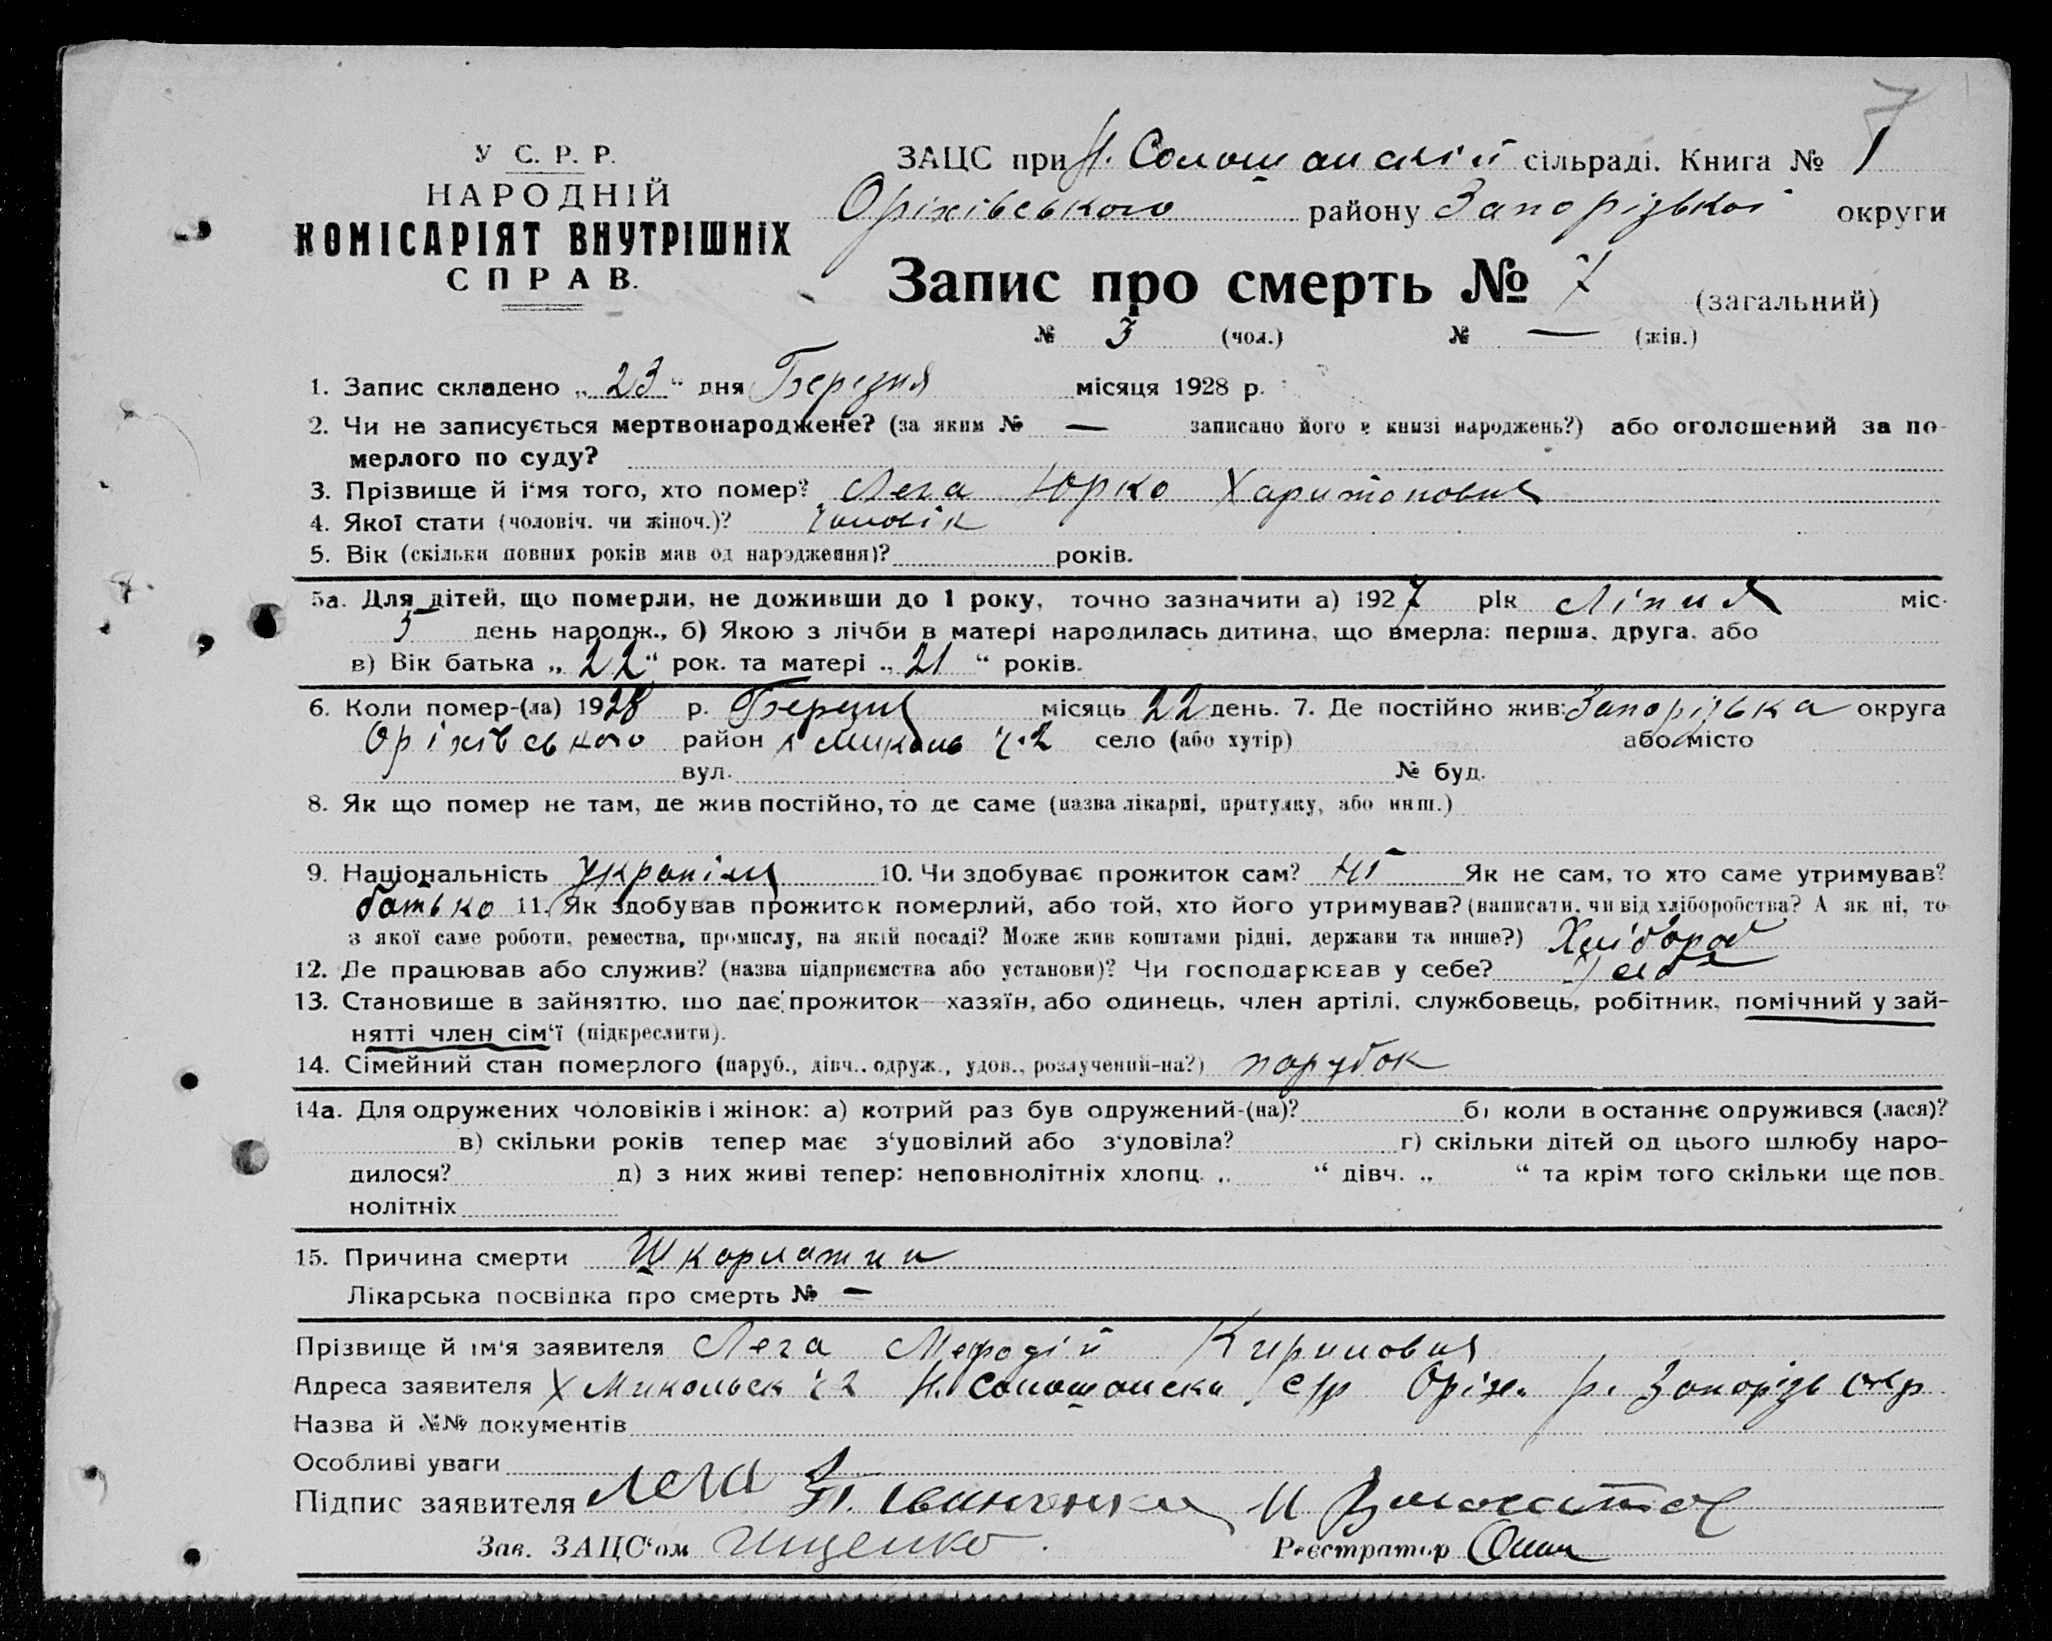 7
У С. Р. Р.
НАРОДНІЙ
КОМІСАРІЯТ ВНУТРІШНІХ
СПРАВ.
ЗАЦС при Н. Солошанській сільраді. Книга № 1
Оріхівського району Запорізької округи
Запис про смерть № 7 (загальний)
№ 3 (чол.) № — (жін.)
1. Запис складено „ 23 “ дня Березня місяця 1928 р.
2. Чи не записується мертвонароджене? (за яким № — записано його в книзі народжень?) або оголошений за по-
мерлого по суду?
3. Прізвище й і'мя того, хто помер? Лега Юрко Харитонович
4. Якої стати (чоловіч. чи жіноч.)? Чоловік
5. Вік (скільки повних років мав од народження)? років.
5а. Для дітей, що померли, не доживши до 1 року, точно зазначити а) 1927 рік Ліпня міс.
5 день народж., б) Якою з лічби в матері народилась дитина, що вмерла: перша, друга, або
в) Вік батька „ 22 “ рок. та матері „ 21 “ років.
6. Коли помер-(ла) 1928 р. Березня місяць 22 день. 7. Де постійно жив: Запорізька округа
Оріхівського район х Миколь ч. 2 село (або хутір) або місто
вул. № буд.
8. Як що помер не там, де жив постійно, то де саме (назва лікарні, притулку, або инш.)
9. Національність Українец 10. Чи здобуває прожиток сам? Ні Як не сам, то хто саме утримував?
батько 11. Як здобував прожиток померлий, або той, хто його утримував? (написати, чи від хліборобства? А як ні, то
з якої саме роботи, ремества, промислу, на якій посаді? Може жив коштами рідні, держави та инше?) Хлібороб
12. Де працював або служив? (назва підприємства або установи)? Чи господарював у себе? У себе
13. Становище в зайняттю, що дає прожиток—хазяїн, або одинець, член артілі, службовець, робітник, помічний у зай-
нятті член сім'ї (підкреслити).
14. Сімейний стан померлого (паруб., дівч., одруж., удов., розлучений-на?) парубок
14а. Для одружених чоловіків і жінок: а) котрий раз був одружений-(на)? б) коли в останнє одружився (лася)?
в) скільки років тепер має з'удовілий або з'удовіла? г) скільки дітей од цього шлюбу наро-
дилося? д) з них живі тепер: неповнолітніх хлопц. „ “ дівч. „ “ та крім того скільки ще пов.
нолітніх
15. Причина смерти Шкорлатин
Лікарська посвідка про смерть № —
Прізвище й ім'я заявителя Лега Мефодій Кирилович
Адреса заявителя Х Микольск ч 2 Н. Солошански с/р Оріх. р. Запоріз окр
Назва й №№ документів
Особливі уваги
Підпис заявителя Лега П. Іванченки И
Зав. ЗАЦС'ом Іщенко. Реєстратор